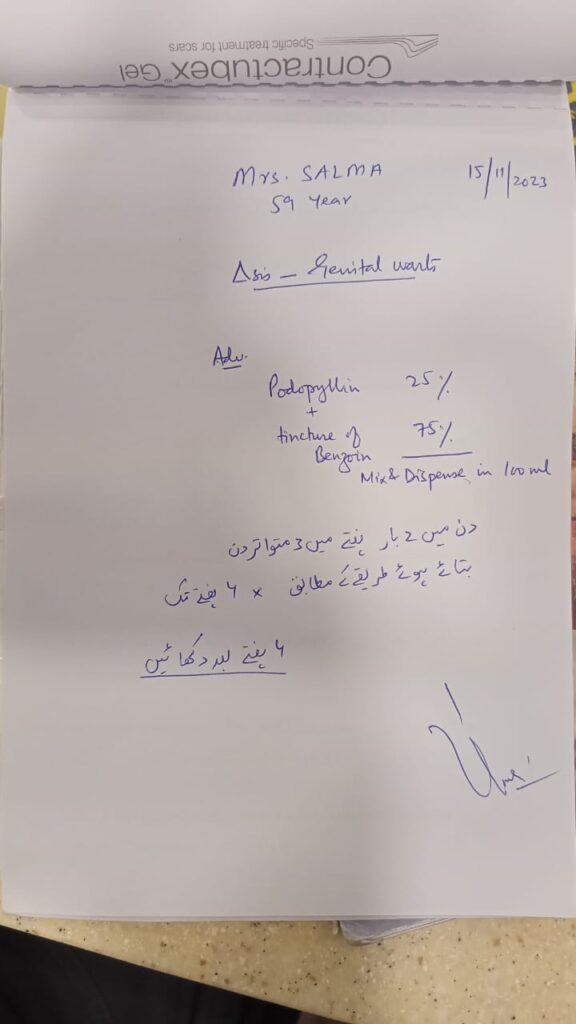 Contractubex Gel
Specific treatment for scars
Mrs. SALMA 15/11/2023
59 Year
Δsis – Genital warts
Adv.
Podopyllin 25%
+
tincture of Benzoin 75%
Mix & Dispense in 100 ml
دن میں 2 بار ہفتے میں 3 متواتر دن
بتائے ہوئے طریقے کے مطابق × ۴ ہفتے تک
۴ ہفتے بعد دکھائیں